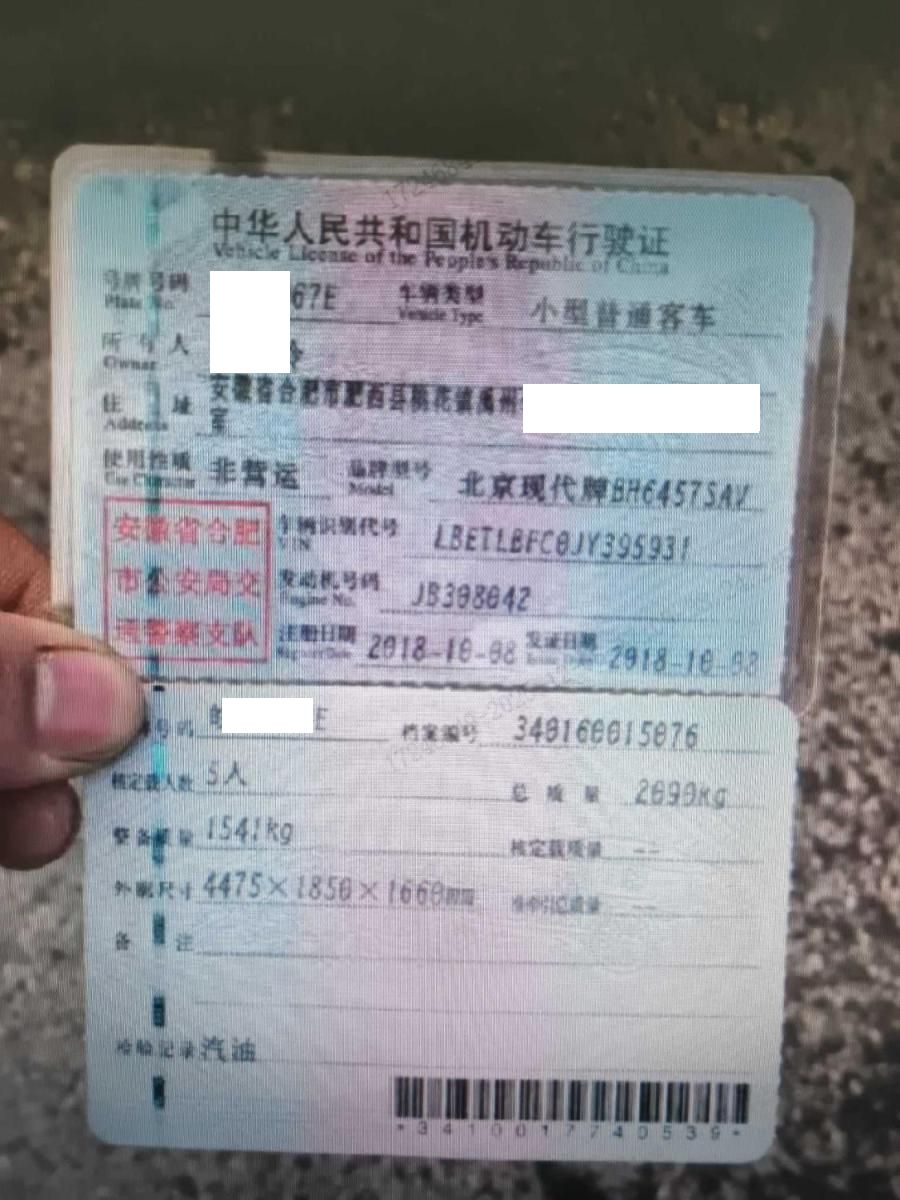 中华人民共和国机动车行驶证
Vehicle License of the People's Republic of China
号牌号码 67E 车辆类型 小型普通客车
Plate No. Vehicle Type
所有人
Owner
住址 安徽省合肥市肥西县桃花镇禹州
Address 室
使用性质 非营运 品牌型号 北京现代牌BH6457SAV
Use Character Model
安徽省合肥 车辆识别代号 LBETLBFC0JY395931
VIN
市公安局交 发动机号码 JB308042
Engine No.
通警察支队 注册日期 2018-10-08 发证日期 2018-10-08
号码 E 档案编号 340160015076
核定载人数 5人 总质量 2090kg
整备质量 1541kg 核定载质量 --
外廓尺寸 4475×1850×1660mm 准牵引总质量 --
备注
检验记录 汽油
*3410017740539*